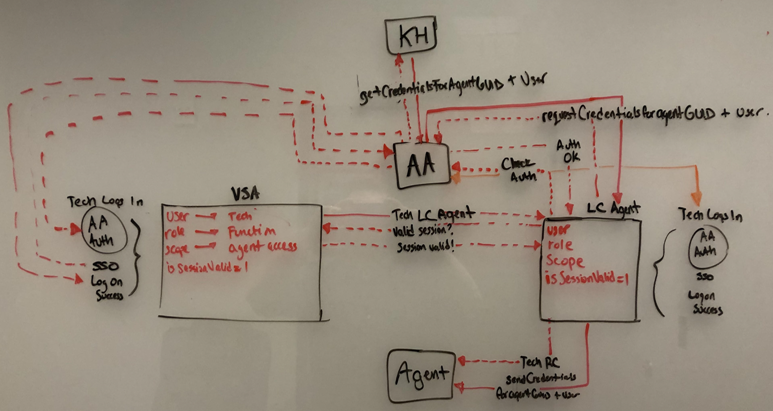 KH
getCredentialsForAgentGUID + User
requestCredentialsForagentGUID + User.
AA
Auth
OK
Check
Auth
VSA
LC Agent
Tech Logs In
AA
Auth
SSO
Log On
Success
User → Tech
role → Function
scope → agent access
isSessionValid=1
Tech LC Agent
Valid session?
Session valid!
user
role
Scope
isSessionValid=1
Tech Logs In
AA
Auth
SSO
Logon
Success
Agent
Tech RC
sendCredentials
ForagentGUID + User